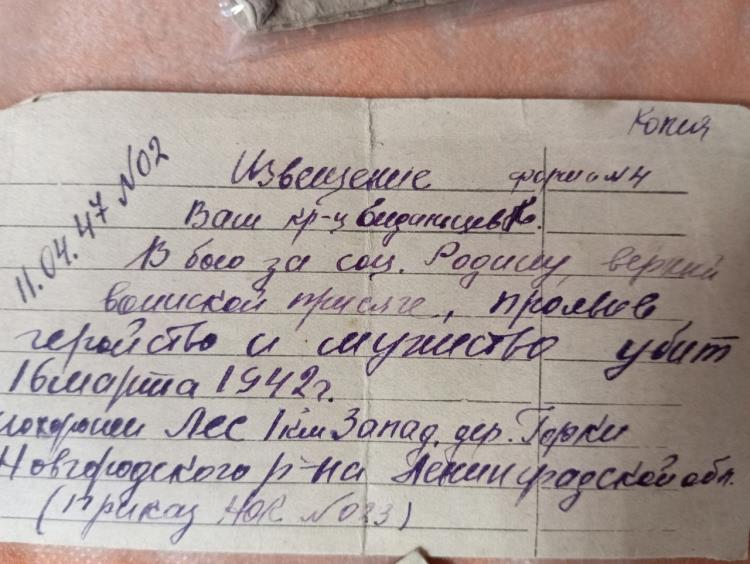 Копия
11.04.47 №02
Извещение форма №4
Ваш кр-ц
В бою за соц. Родину, верный
воинской присяге, проявив
геройство и мужество убит
16 марта 1942 г.
похоронен Лес 1 км Запад. дер. Горки
Новгородского р-на Ленинградской обл.
(приказ №023)